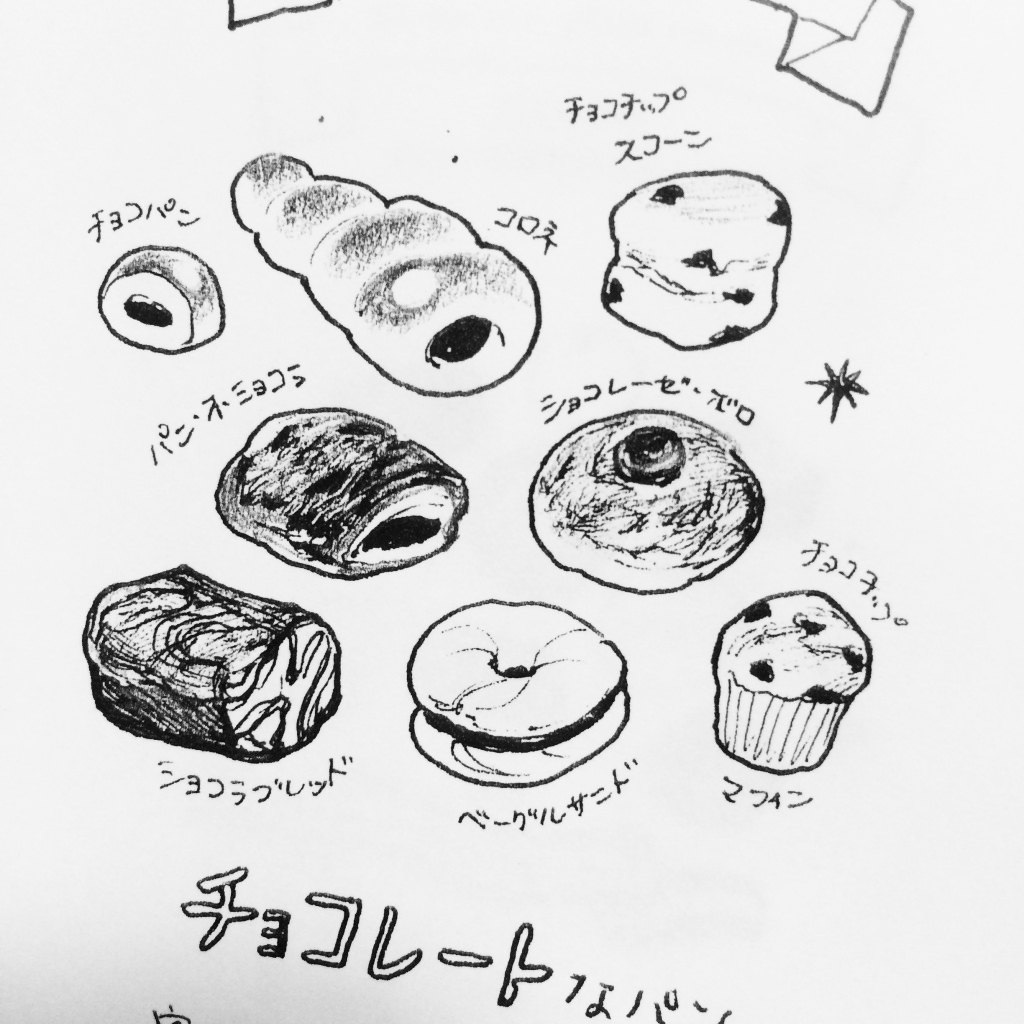 チョコチップ
スコーン
チョコパン
コロネ
パン・オ・ショコラ
ショコレーゼ・ボロ
チョコチップ
マフィン
ショコラブレッド
ベーグルサンド
チョコレートなパン